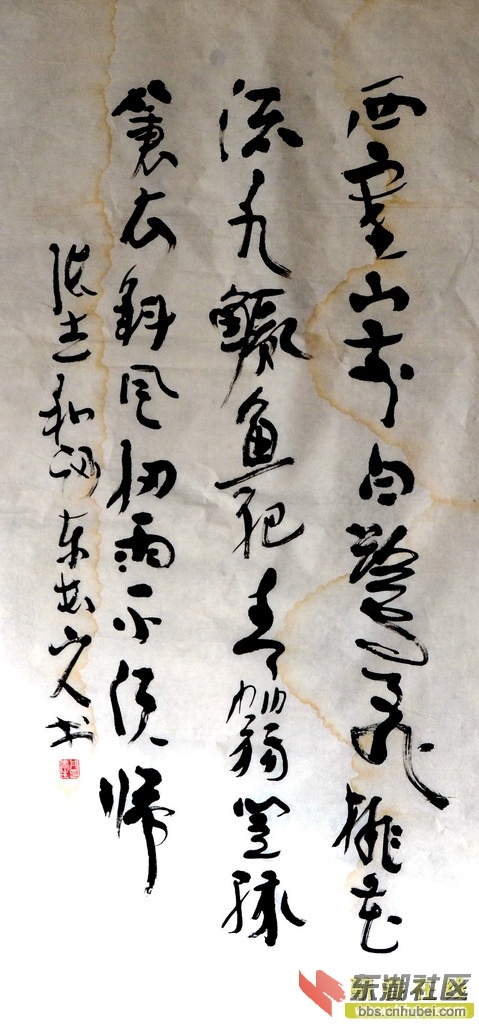 西塞山前白鹭飞桃花
流水鳜鱼肥青箬笠绿
蓑衣斜风细雨不须归
张志和词 东 山人书
东湖社区
bbs.cnhubei.com